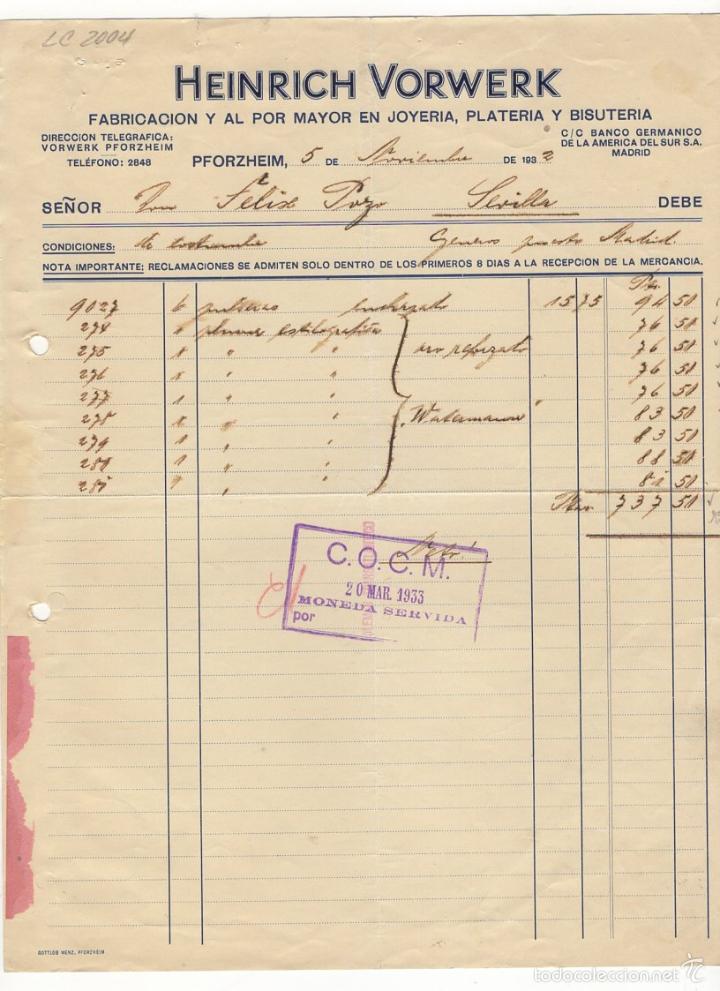 LC 2004
HEINRICH VORWERK
FABRICACION Y AL POR MAYOR EN JOYERIA, PLATERIA Y BISUTERIA
DIRECCION TELEGRAFICA:
VORWERK PFORZHEIM
TELÉFONO: 2848
C/C BANCO GERMANICO
DE LA AMERICA DEL SUR S.A.
MADRID
PFORZHEIM, 5 DE Noviembre DE 1932
SEÑOR Don Félix Pozo Sevilla DEBE
CONDICIONES: de costumbre Genero puesto Madrid.
NOTA IMPORTANTE: RECLAMACIONES SE ADMITEN SOLO DENTRO DE LOS PRIMEROS 8 DIAS A LA RECEPCION DE LA MERCANCIA.
9027 6 pulseras enchapado 15 75 94 50
274 plumas estilografica 76 50
275 1 " " oro reforzado 76 50
276 1 " " 76 50
277 1 " " 76 50
278 1 " " "Watermann" 83 50
279 1 " " 83 50
280 1 " " 88 50
281 1 " " 81 50
Ptas. 737 50
C. O. C. M.
20 MAR. 1933
MONEDA SERVIDA
por
GOTTLOB MENZ, PFORZHEIM
todocoleccion.net